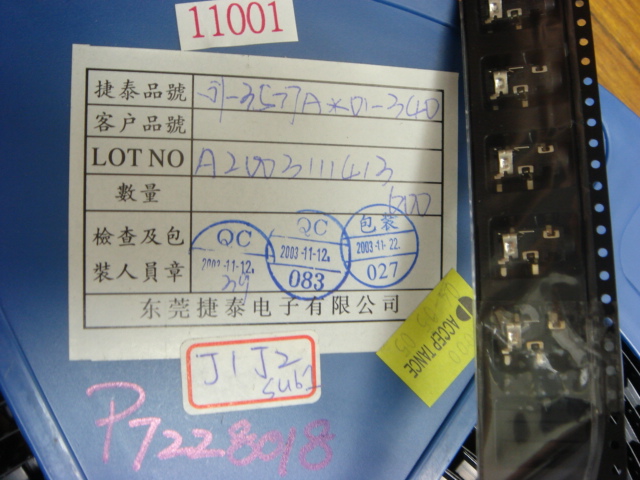 11001
捷泰品號 JI-3577A*01-340
客户品號
LOT NO A2003111413
數量 600
檢查及包
裝人員章
QC
2003-11-12.
QC
2003-11-12.
083
包装
2003-11-22.
027
东莞捷泰电子有限公司
ACCEPTANCE
J1 J2
SUB2
P7228018